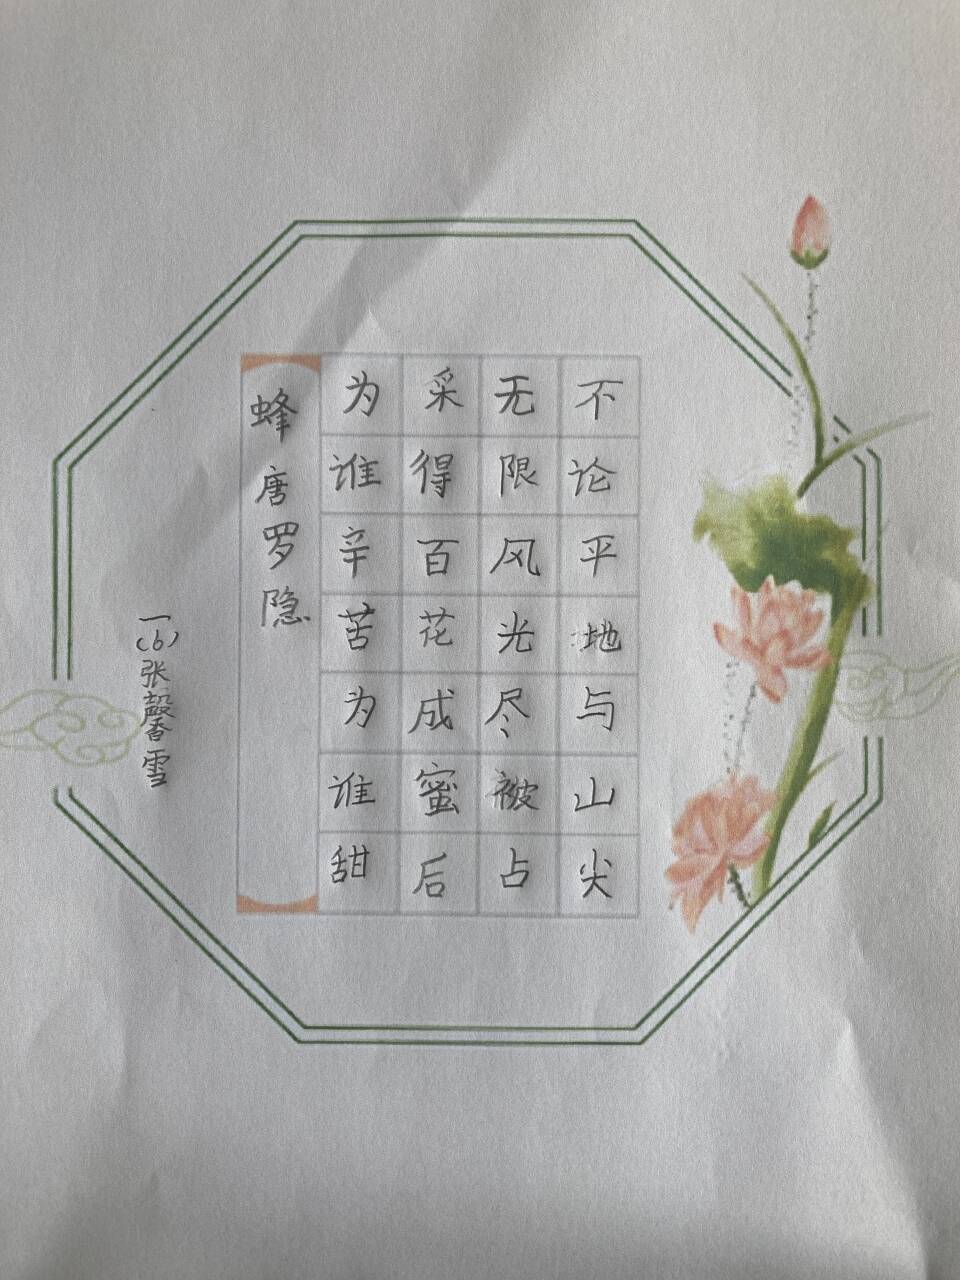 不论平地与山尖
无限风光尽被占
采得百花成蜜后
为谁辛苦为谁甜
蜂唐罗隐
一(6)张馨雪